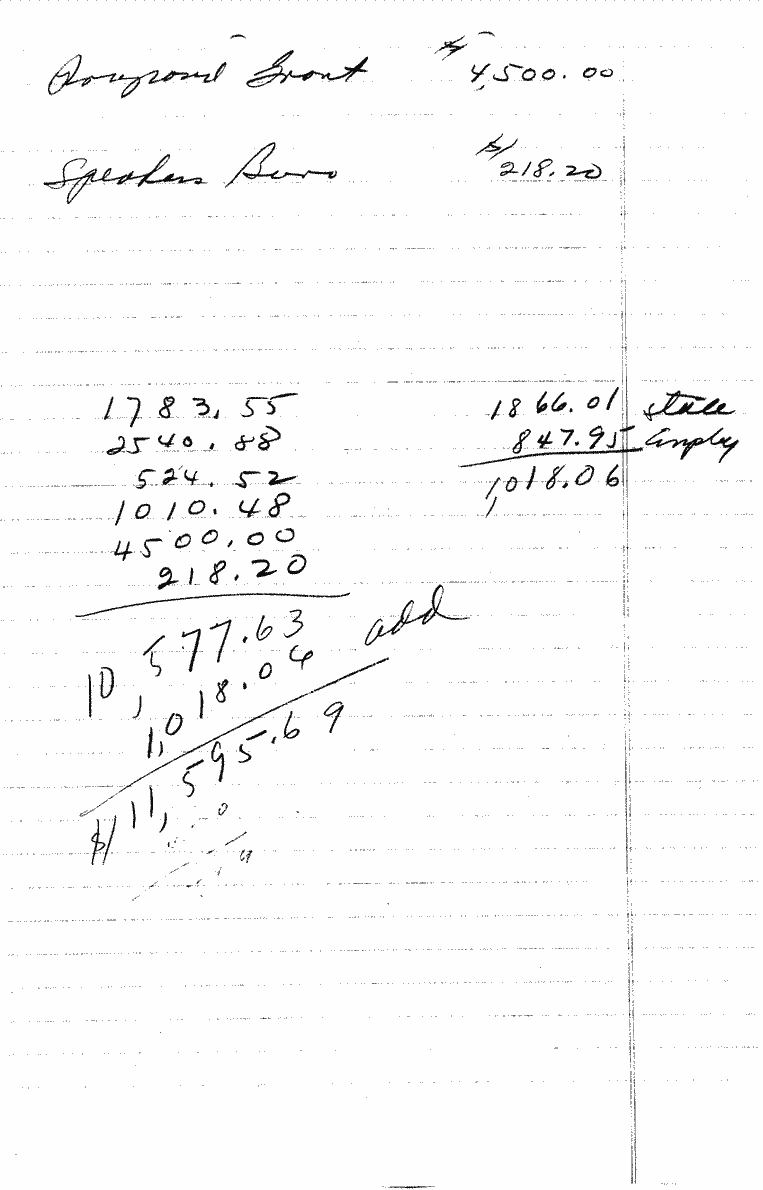 Grant $ 4,500.00
Speakers Buro $ 218.20
1783.55
2540.88
524.52
1010.48
4500.00
218.20
10,577.63 add
1,018.06
$ 11,595.69
1866.01 state
847.95 Emply
1,018.06